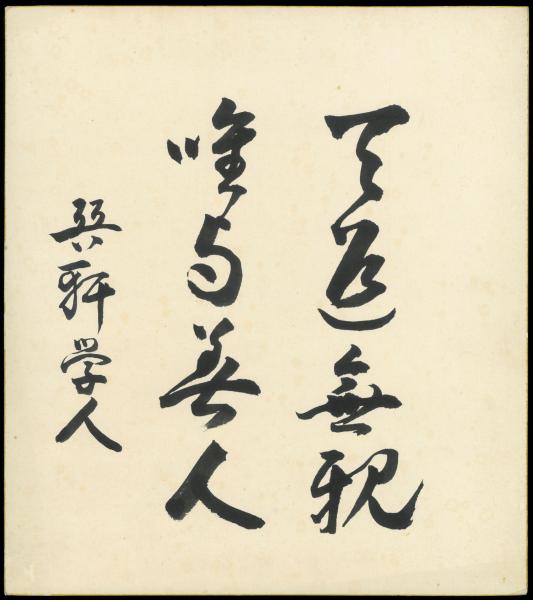 天道無親
唯与善人
巽軒学人